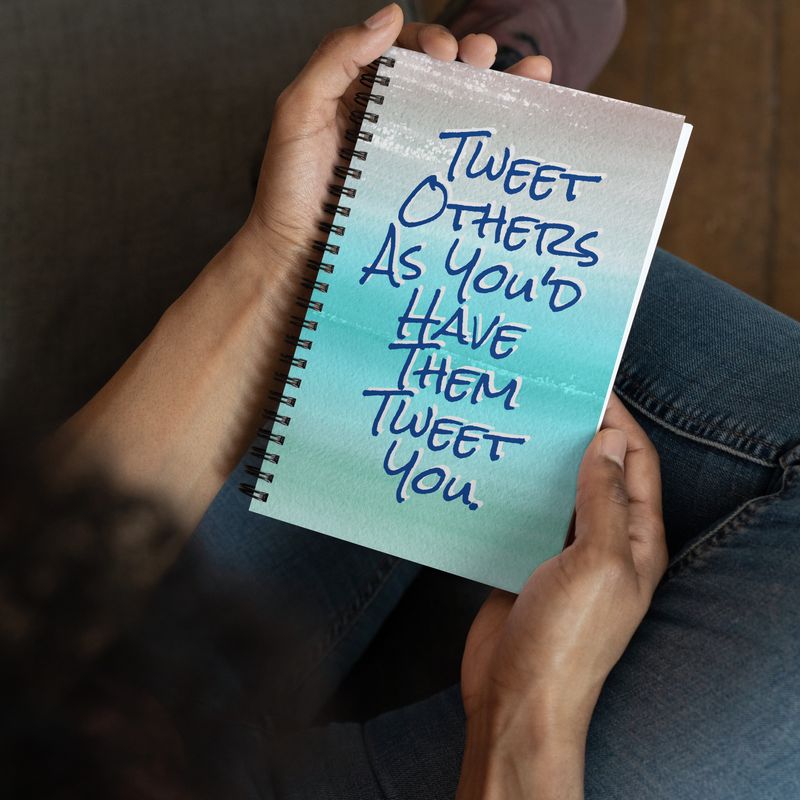 Tweet
Others
As You'd
Have
Them
Tweet
You.